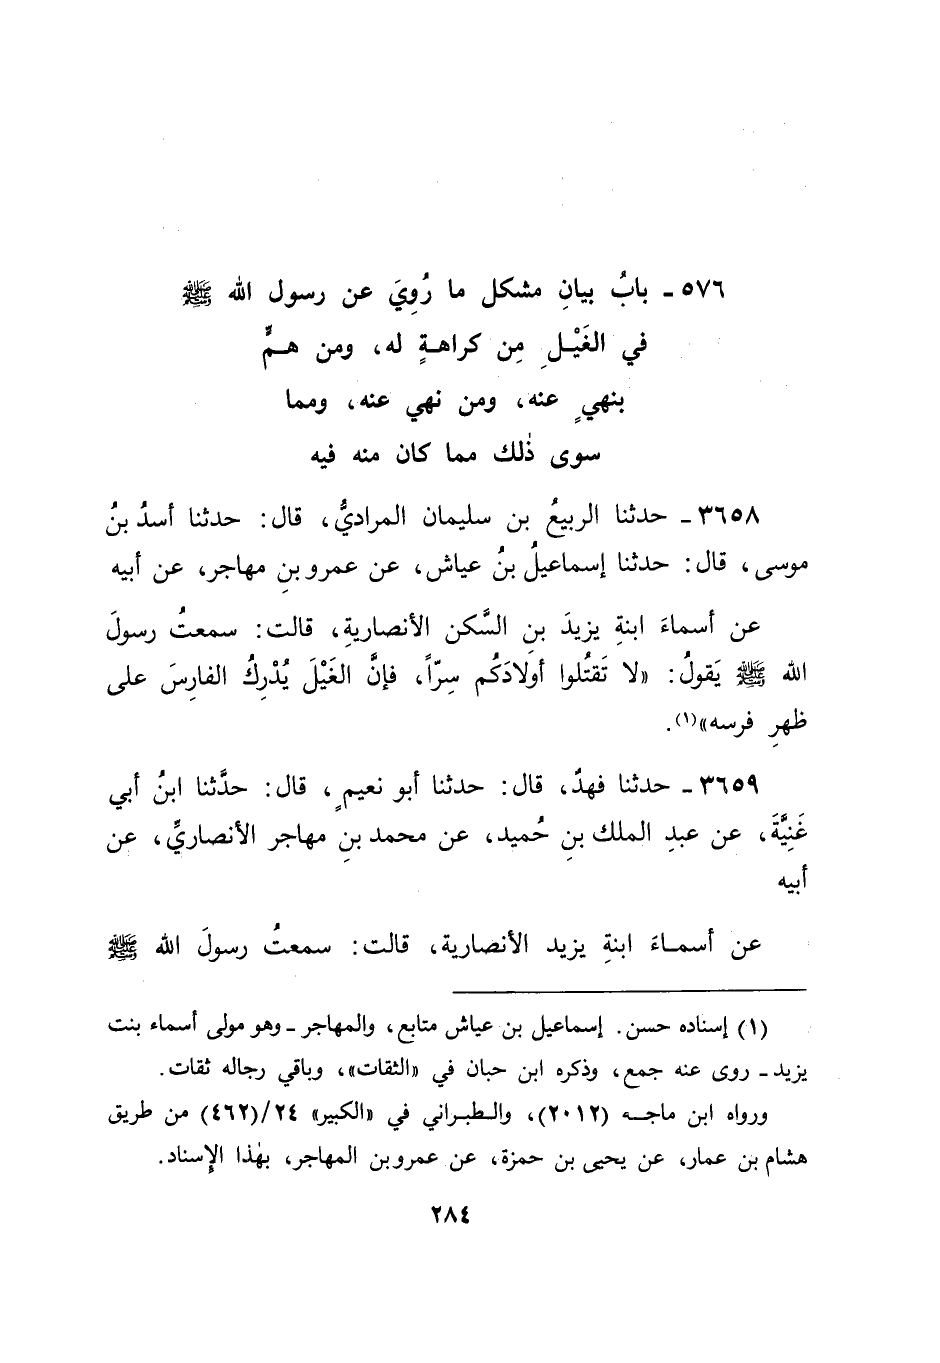 ٥٧٦ ـ بابُ بيانِ مشكل ما رُوِيَ عن رسول الله ﷺ
في الغَيْلِ مِن كراهةٍ له، ومن همٍّ
بنهيٍ عنه، ومن نهي عنه، ومما
سوى ذٰلك مما كان منه فيه
٣٦٥٨ ـ حدثنا الربيعُ بن سليمان المراديُّ، قال: حدثنا أسدُ بنُ
موسى، قال: حدثنا إسماعيلُ بنُ عياش، عن عمرو بنِ مهاجر، عن أبيه
عن أسماءَ ابنةِ يزيدَ بنِ السَّكن الأنصاريةِ، قالت: سمعتُ رسولَ
الله ﷺ يَقولُ: «لا تَقتُلوا أولادَكُم سِرّاً، فإنَّ الغَيْلَ يُدْرِكُ الفارِسَ على
ظهرِ فرسه»(١).
٣٦٥٩ ـ حدثنا فهدٌ، قال: حدثنا أبو نعيمٍ، قال: حدَّثنا ابنُ أبي
غَنِيَّةَ، عن عبدِ الملك بنِ حُميد، عن محمد بنِ مهاجر الأنصاريِّ، عن
أبيه
عن أسماءَ ابنةِ يزيد الأنصارية، قالت: سمعتُ رسولَ الله ﷺ
(١) إسناده حسن. إسماعيل بن عياش متابع، والمهاجر ـ وهو مولى أسماء بنت
يزيد ـ روى عنه جمع، وذكره ابن حبان في «الثقات»، وباقي رجاله ثقات.
ورواه ابن ماجه (٢٠١٢)، والطبراني في «الكبير» ٢٤/(٤٦٢) من طريق
هشام بن عمار، عن يحيى بن حمزة، عن عمرو بن المهاجر، بهٰذا الإسناد.
٢٨٤